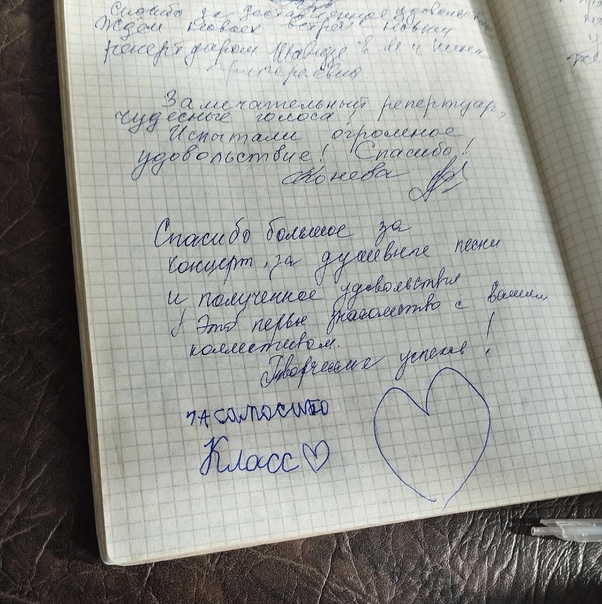 Спасибо за доставленное удовольствие
Ждём новых встреч с новым
репертуаром
Замечательный репертуар,
чудесные голоса!
Испытали огромное
удовольствие! Спасибо!
Конева
Спасибо большое за
концерт, за душевные песни
и полученное удовольствия
Это первое знакомство с вашим
коллективом.
Творческих успехов!
Класс